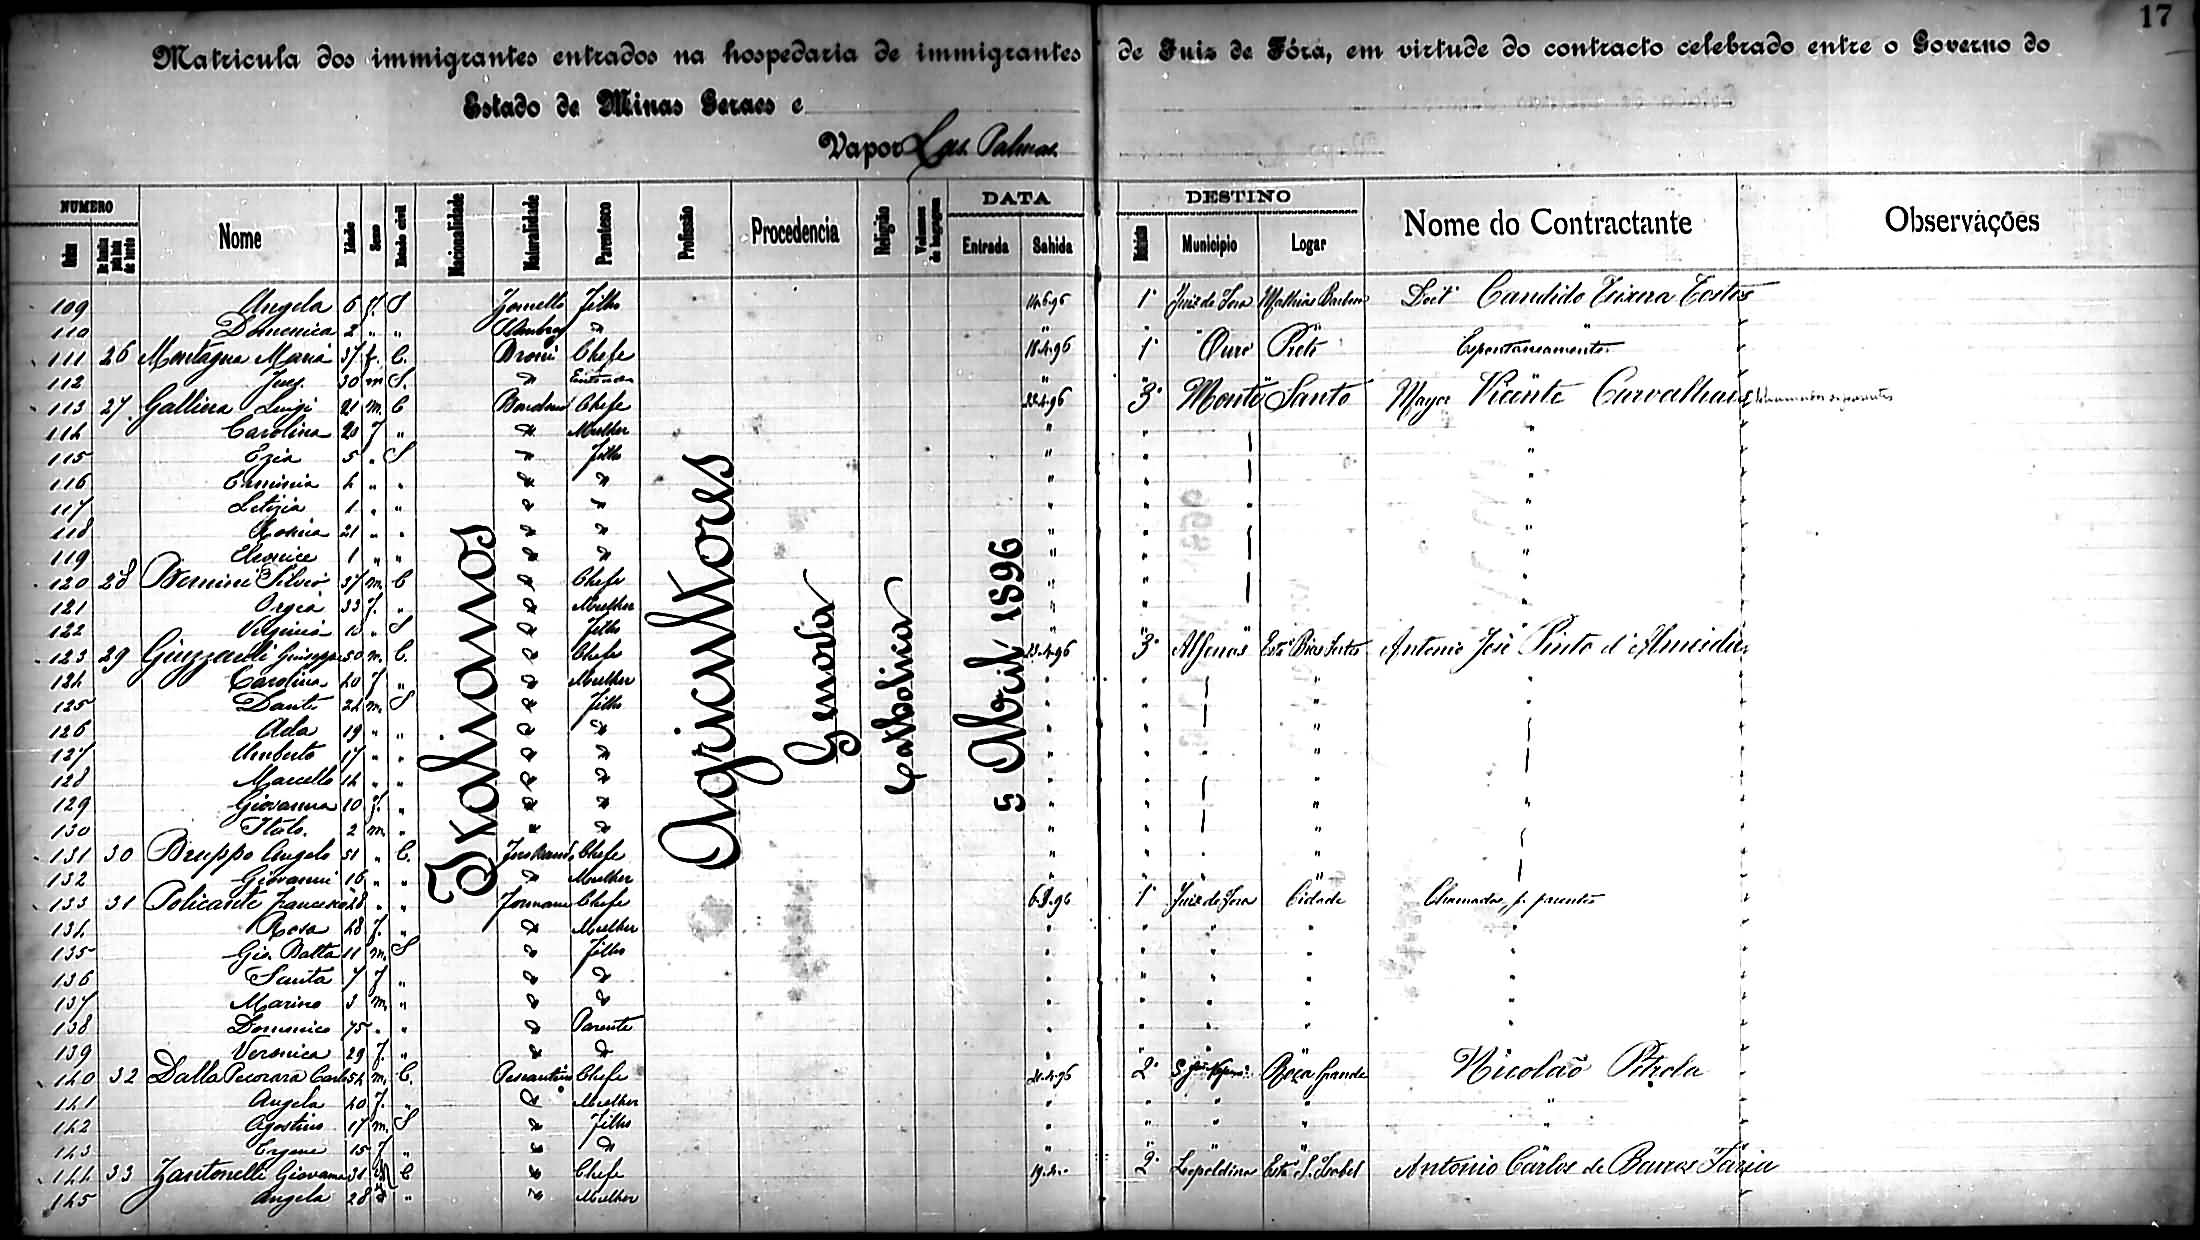 17
Matricula dos immigrantes entrados na hospedaria de immigrantes de Juiz de Fóra, em virtude do contracto celebrado entre o Governo do
Estado de Minas Geraes e
Vapor Las Palmas
NUMERO Nome Idade Sexo Estado civil Nacionalidade Naturalidade Parentesco Profissão Procedencia Religião Volumes de bagagem DATA Entrada Sahida DESTINO Municipio Logar Nome do Contractante Observações
Italianos Agricultores Genova Catholica 5 Abril 1896
109 Angela 6 f. S Filho 1 Juiz de Fora Mathias Barbosa Candido Teixera Tostes
110 Domenica 2 " " "
111 26 Montagna Maria 37 f. C. Broni Chefe 18-4-96 1 Ouro Preto Espontaneamente
112 30 m S. "
113 27 Galliera Luigi 21 m. C Chefe 22-4-96 3 Monte Santo Major Vicente Carvalhaes
114 Carolina 20 f " " Mulher " " "
115 Ezia 5 " S " Filho " " "
116 4 " " " " " " "
117 Letizia 1 " " " " " " "
118 21 " " " " " " "
119 1 " " " " " " "
120 28 Bernini Silvio 37 m. C " Chefe " " "
121 33 f. " " Mulher " " "
122 Virginia 10 " S " Filho "
123 29 Giuzzardi Giuseppe 50 m. C. " Chefe 23-4-96 3 Alfenas Antonio José Pinto d'Almeida
124 Carolina 40 f " " Mulher " " " "
125 Dante 24 m. S " Filho " " " "
126 Ada 19 " " " " " " "
127 Umberto 17 " " " " " " "
128 Marcello 14 " " " " " " "
129 Giovanna 10 f. " " " " " " "
130 Italo. 2 m. " " " " " "
131 30 Bruppo Angelo 51 " C. Chefe " " "
132 Giovanni 16 " " " Mulher " "
133 31 Policante Francesco 28 " " Chefe 6-8-96 1 Juiz de Fora Cidade Chamados p. parentes
134 Rosa 28 f. " " Mulher " " " " "
135 Gio. Batta 11 m. S " Filho " " " " "
136 Santa 7 f " " " " " " " "
137 Marino 3 m. " " " " " " " "
138 Domenico 75 " " " Parente " " " "
139 Veronica 29 f. " " " " " " "
140 32 Dalla Pecorara Carlo 54 m. C. Pescantina Chefe 2 Roça Grande Nicoláo
141 Angela 40 f. " " Mulher " " " " "
142 Agostino 17 m. S " Filho " " " " "
143 15 f " " " " " " "
144 33 Zantonelli Giovanna 31 C " Chefe 2 Leopoldina S. Izabel Antonio Carlos de Barros Faria
145 Angela 28 " " Mulher